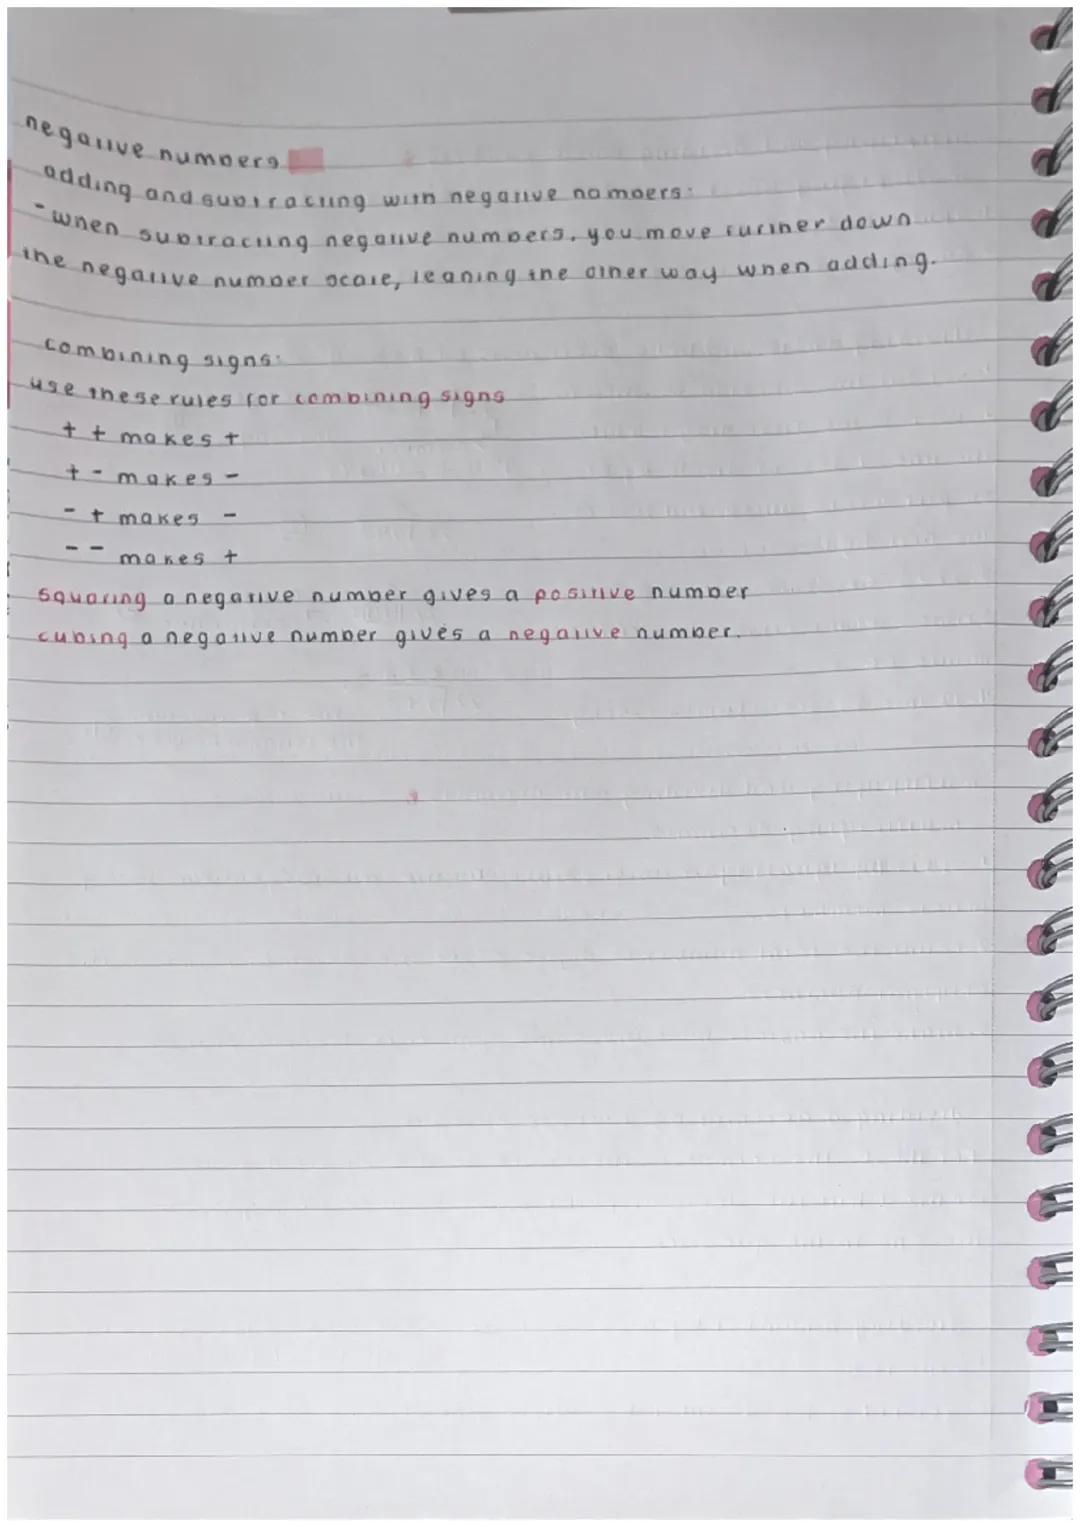 negative numbers
adding and subtracting with negative nombers:
- when subtracting negative numbers, you move further down
the negative number scale, leaning the other way when adding.
combining signs:
use these rules for combining signs
+ + makes +
+ - makes -
- + makes -
- - makes +
squaring a negative number gives a positive number
cubing a negative number gives a negative number.